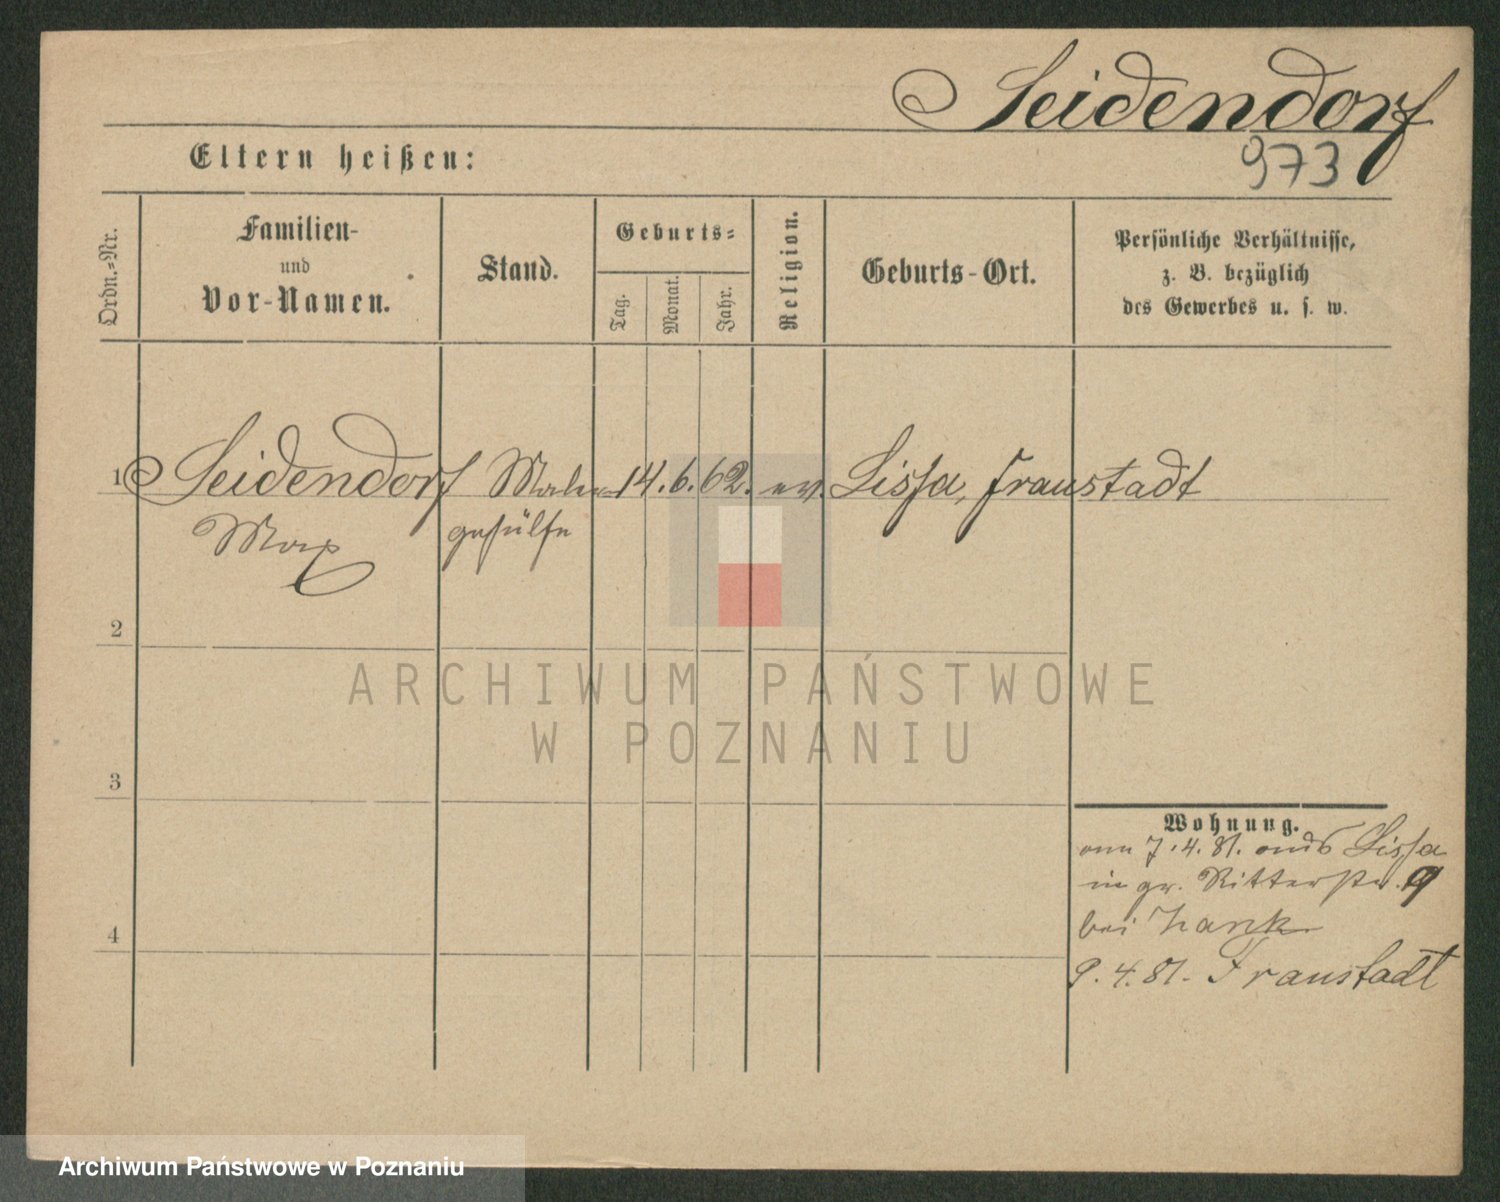 Seidendorf
973
Eltern heißen:
Ordn.=Nr.
Familien-
und
Vor-Namen.
Stand.
Geburts=
Tag.
Monat.
Jahr.
Religion.
Geburts-Ort.
Persönliche Verhältnisse,
z. B. bezüglich
des Gewerbes u. s. w.
1 Seidendorf Maler- 14. 6. 62. ev. Lissa, Fraustadt
Max gehülfe
2
3
4
Wohnung.
7.4.81. aus Lissa
in gr. Ritterstr. 9
bei
9.4.81. Fraustadt
ARCHIWUM PAŃSTWOWE
W POZNANIU
Archiwum Państwowe w Poznaniu